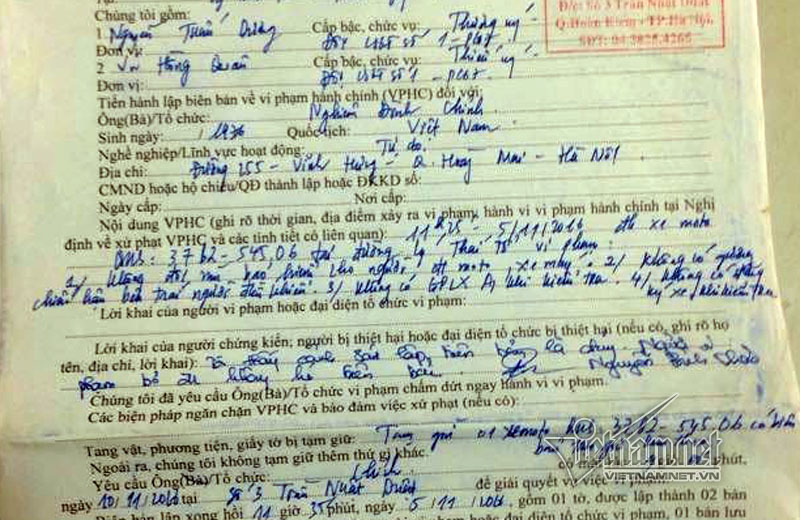 Đ/c: Số 3 Trần Nhật Duật
Q.Hoàn Kiếm - TP.Hà Nội
SĐT: 04.3828.4265
Chúng tôi gồm:
1. Nguyễn Tuấn Dương Cấp bậc, chức vụ: Thượng uý -
Đơn vị: Đội CSGT số 1 -
2 Vũ Hồng Quân Cấp bậc, chức vụ: Thiếu uý -
Đơn vị: Đội CSGT số 1 -
Tiến hành lập biên bản về vi phạm hành chính (VPHC) đối với:
Ông(Bà)/Tổ chức: Nghiêm Đình Chỉnh
Sinh ngày: 1976 Quốc tịch: Việt Nam
Nghề nghiệp/Lĩnh vực hoạt động: Tự do.
Địa chỉ: Đường 255 - Vĩnh Hưng - Q. Hoàng Mai - Hà Nội
CMND hoặc hộ chiếu/QĐ thành lập hoặc ĐKKD số:
Ngày cấp: Nơi cấp:
Nội dung VPHC (ghi rõ thời gian, địa điểm xảy ra vi phạm, hành vi vi phạm hành chính tại Nghị
định về xử phạt VPHC và các tình tiết có liên quan): 11h25 - 5/11/2016 đk xe moto
37B2 - 545.06 tại đường Lý Thái Tổ vi phạm:
1/ Không đội mũ bảo hiểm cho người đk moto xe máy. 2/ Không có gương
chiếu hậu bên trái người điều khiển. 3/ Không có GPLX A1 khi kiểm tra. 4/ Không có đăng
ký xe khi kiểm tra
Lời khai của người vi phạm hoặc đại diện tổ chức vi phạm:
Lời khai của người chứng kiến; người bị thiệt hại hoặc đại diện tổ chức bị thiệt hại (nếu có, ghi rõ họ
tên, địa chỉ, lời khai): lập biên bản là đúng. Người vi
phạm bỏ đi không ký biên bản Nguyễn
Chúng tôi đã yêu cầu Ông(Bà)/Tổ chức vi phạm chấm dứt ngay hành vi vi phạm.
Các biện pháp ngăn chặn VPHC và bảo đảm việc xử phạt (nếu có):
Tang vật, phương tiện, giấy tờ bị tạm giữ: Tạm giữ 01 xe moto 37B2 - 545.06
Ngoài ra, chúng tôi không tạm giữ thêm thứ gì khác.
Yêu cầu Ông(Bà)/Tổ chức: Chỉnh phút,
ngày 10/11/2016 tại Số 3 Trần Nhật Duật để giải quyết vụ việc vi phạm.
lập xong hồi 11 giờ 35 phút, ngày 5/11/2016, gồm 01 tờ, được lập thành 02 bản
hoặc đại diện tổ chức vi phạm, 01 bản lưu
Vietnamnet
VIETNAMNET.VN